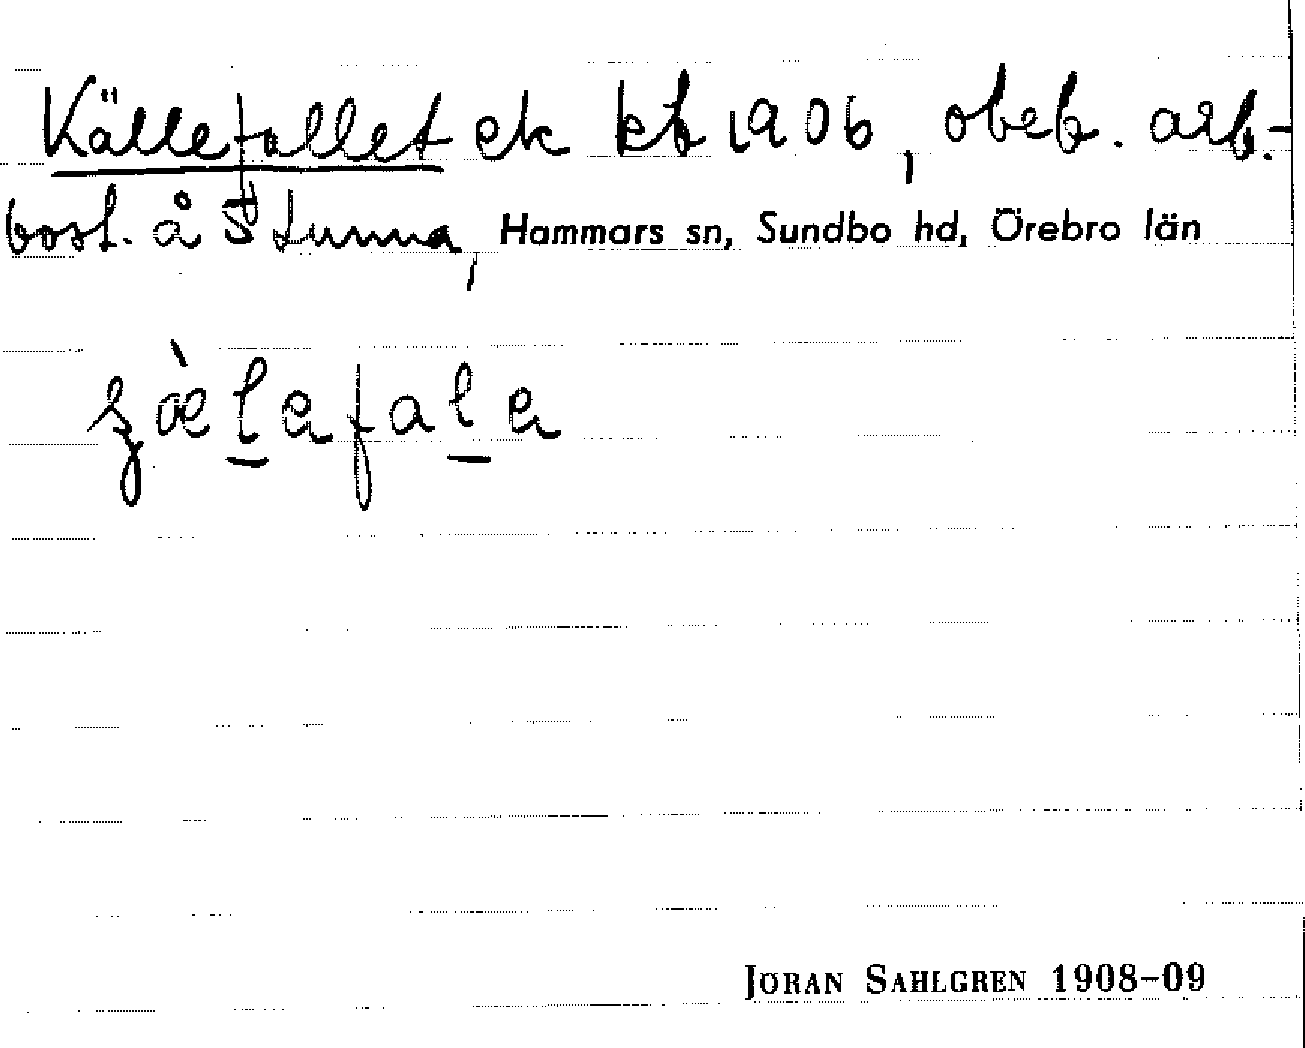 Källefallet ek kb 1906, obeb. arb.-
bost. å S Lunna, Hammars sn, Sundbo hd, Örebro län
JÖRAN SAHLGREN 1908-09